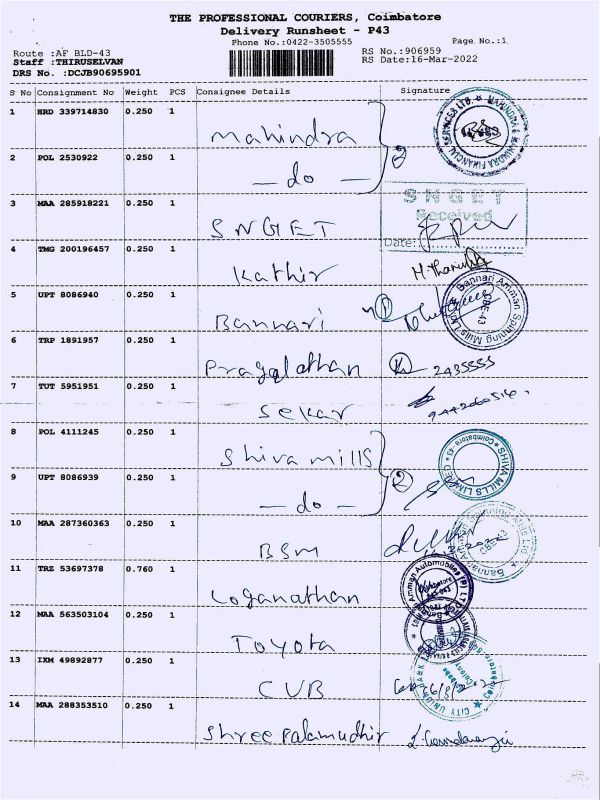 THE PROFESSIONAL COURIERS, Coimbatore
Delivery Runsheet - P43
Phone No.:0422-3505555
Page No.:1
Route :AF BLD-43
RS No.:906959
Staff :THIRUSELVAN
RS Date:16-Mar-2022
DRS No. :DCJB90695901
S No Consignment No Weight PCS Consignee Details Signature
1 HRD 339714830 0.250 1
Mahindra
2 POL 2530922 0.250 1
— do — 2
3 MAA 285918221 0.250 1
SNGET
SNGET
Received
Date:
4 TMG 200196457 0.250 1
Kathir
5 UPT 8086940 0.250 1
Bannari 1
Bannari Amman Spinning Mills
CBE-43
6 TRP 1891957 0.250 1
Pragalathan 2435555
7 TUT 5951951 0.250 1
Sekar
8 POL 4111245 0.250 1
Shiva mills
SHIVA MILLS LIMITED
Coimbatore - 43
9 UPT 8086939 0.250 1
— do — 2
10 MAA 287360363 0.250 1
BSM
CBE-43
11 TRZ 53697378 0.760 1
Loganathan
Amman Automobiles (P) LTD
12 MAA 563503104 0.250 1
Toyota
13 IXM 49892877 0.250 1
CUB
CITY UNION BANK
14 MAA 288353510 0.250 1
Shree Palamudhir